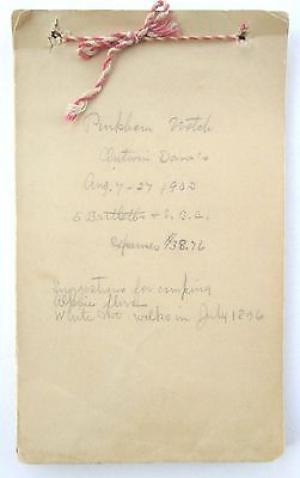 Pinkham Notch
Antwin Davis
Aug. 7-27 1902
5 Bartletts + L.B.C.
Expenses $38.76
Suggestions for camping
White Mt walks in July 1896